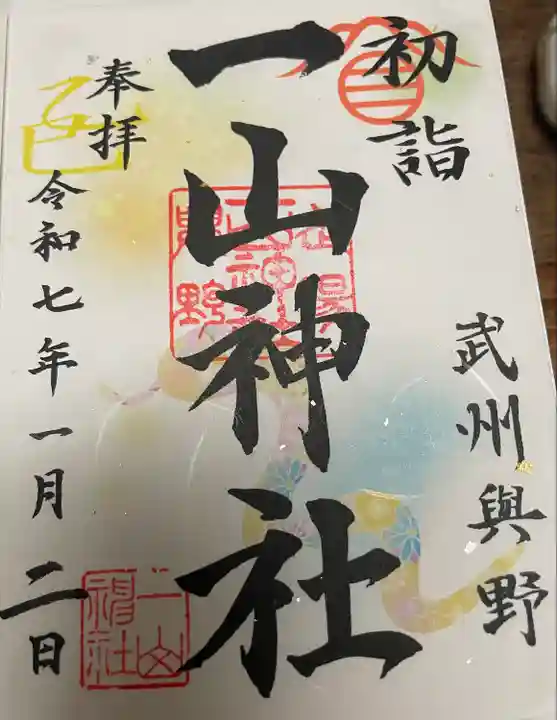 初詣
武州與野
一山神社
奉拝
令和七年一月二日
一山
神社